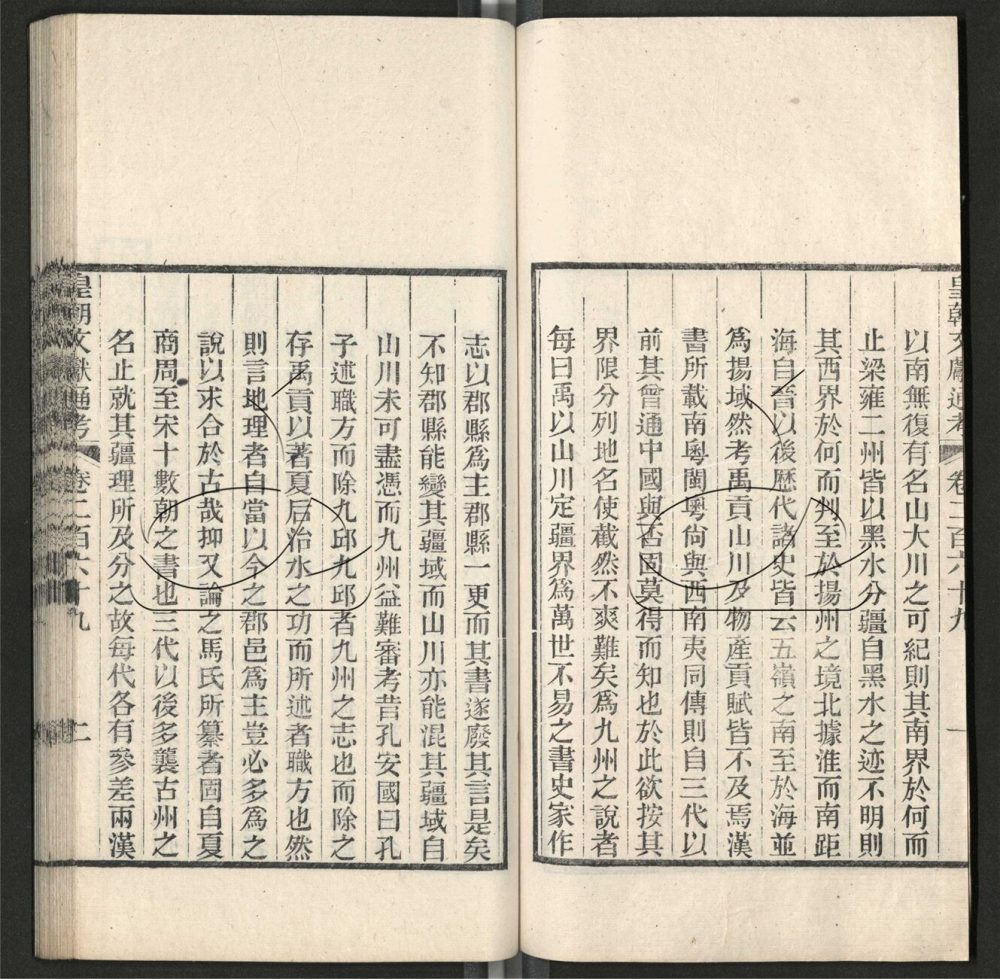 皇朝文獻通考 卷二百六十九 一
以南無復有名山大川之可紀則其南界於何而
止梁雍二州皆以黑水分疆自黑水之迹不明則
其西界於何而判至於揚州之境北據淮而南距
海自晉以後歷代諸史皆云五嶺之南至於海並
爲揚域然考禹貢山川及物產貢賦皆不及焉漢
書所載南粵閩粵尙與西南夷同傳則自三代以
前其曾通中國與否固莫得而知也於此欲按其
界限分列地名使截然不爽難矣爲九州之說者
每曰禹以山川定疆界爲萬世不易之書史家作
志以郡縣爲主郡縣一更而其書遂廢其言是矣
不知郡縣能變其疆域而山川亦能混其疆域自
山川未可盡憑而九州益難審考昔孔安國曰孔
子述職方而除九邱九邱者九州之志也而除之
存禹貢以著夏后治水之功而所述者職方也然
則言地理者自當以今之郡邑爲主豈必多爲之
說以求合於古哉抑又論之馬氏所纂者固自夏
商周至宋十數朝之書也三代以後多襲古州之
名止就其疆理所及分之故每代各有參差兩漢
皇朝文獻通考 卷二百六十九 二